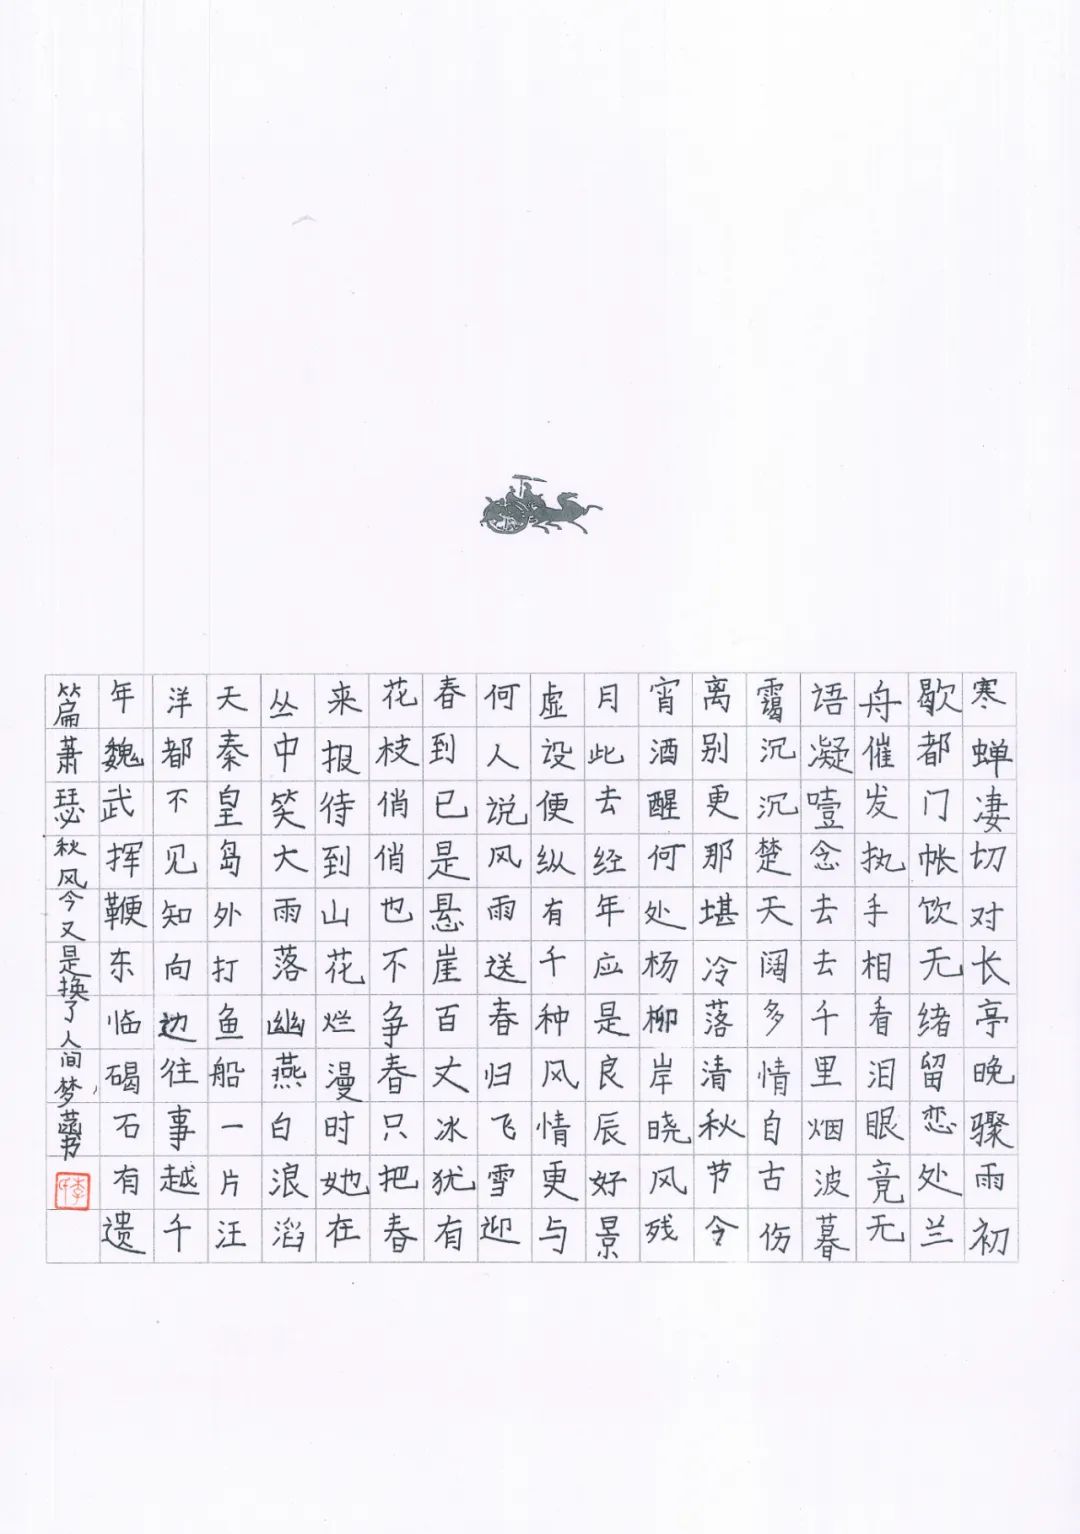 寒蝉凄切对长亭晚骤雨初
歇都门帐饮无绪留恋处兰
舟催发执手相看泪眼竟无
语凝噎念去去千里烟波暮
霭沉沉楚天阔多情自古伤
离别更那堪冷落清秋节令
宵酒醒何处杨柳岸晓风残
月此去经年应是良辰好景
虚设便纵有千种风情更与
何人说风雨送春归飞雪迎
春到已是悬崖百丈冰犹有
花枝俏俏也不争春只把春
来报待到山花烂漫时她在
丛中笑大雨落幽燕白浪滔
天秦皇岛外打鱼船一片汪
洋都不见知向边往事越千
年魏武挥鞭东临碣石有遗
篇萧瑟秋风今又是换了人间梦书